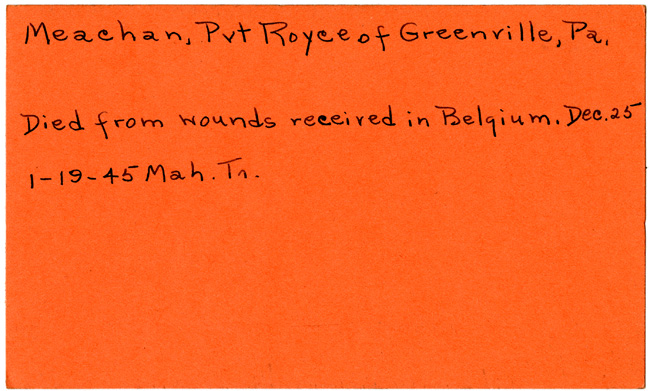 Meachan, Pvt Royce of Greenville, Pa.
Died from wounds received in Belgium. Dec. 25
1-19-45 Mah. Tr.